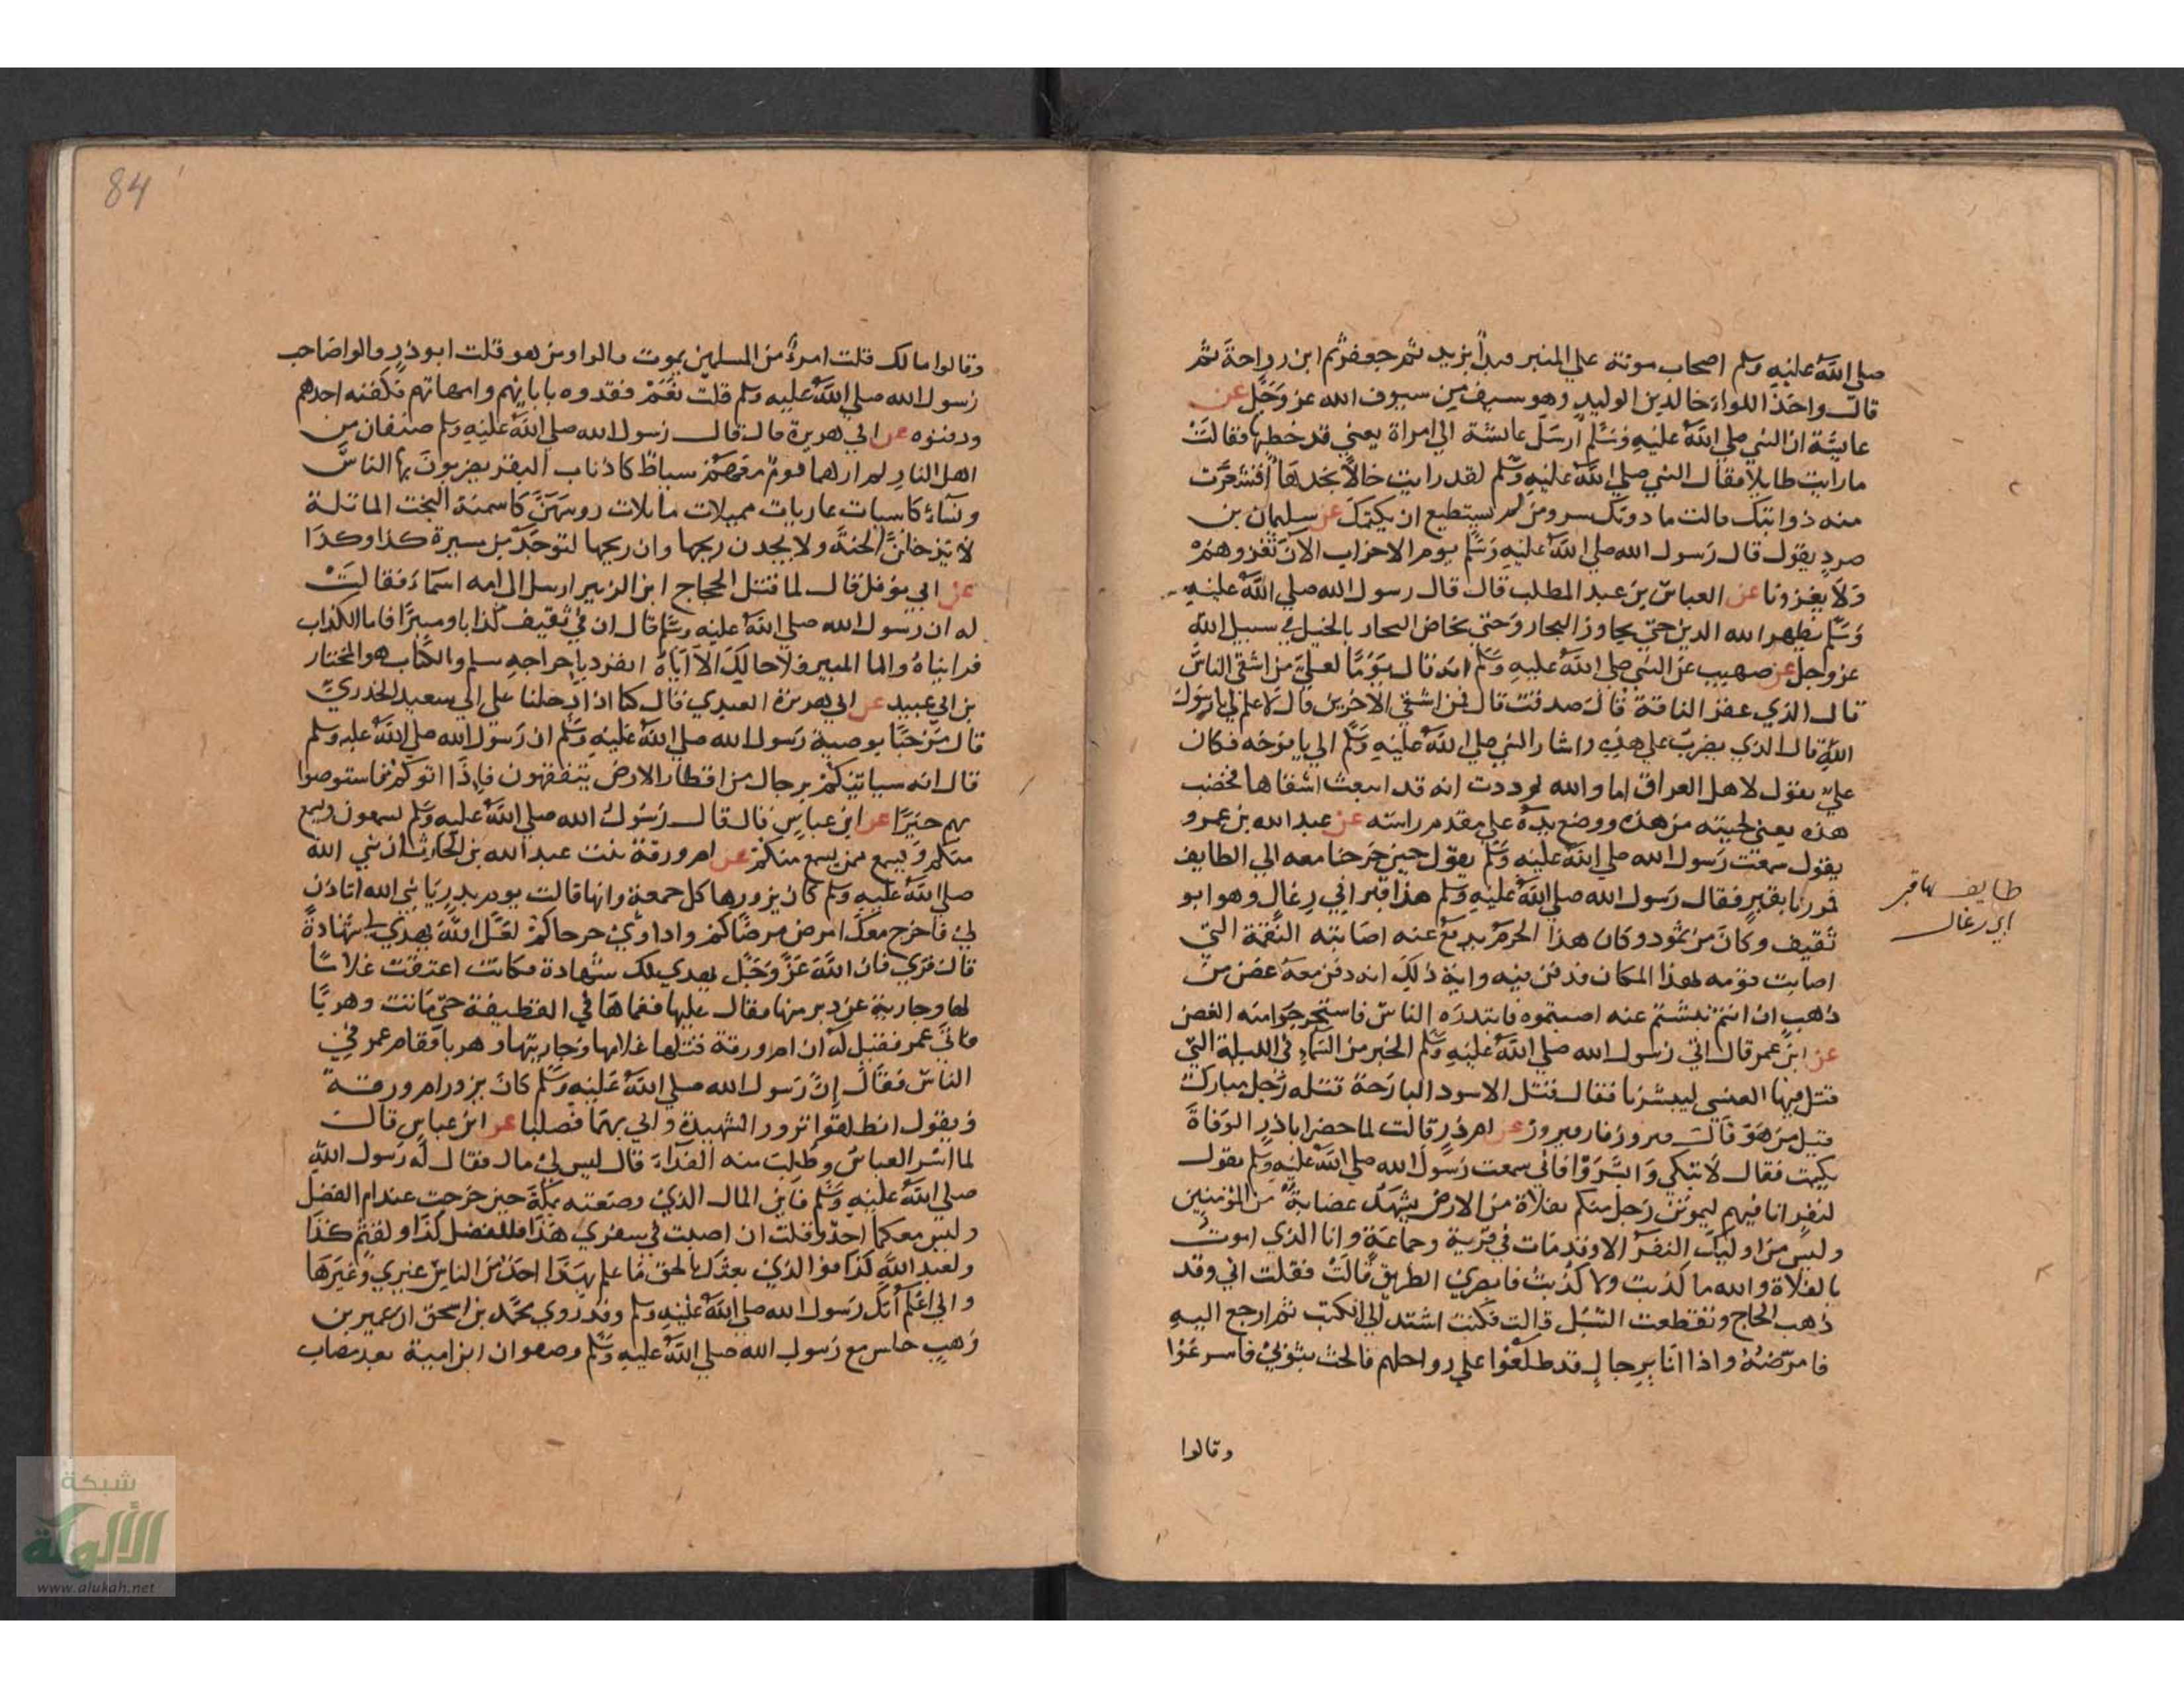 صلي الله عليه وسلم اصحاب موتة علي المنبر فبدا بزيد ثم جعفر ثم ابن رواحة ثم
قال واخذ اللواء خالد بن الوليد وهو سيف من سيوف الله عز وجل عن
عايشة ان النبي صلي الله عليه وسلم ارسل عايشة الي امراة يعني قد خطبها فقالت
ما رايت طايلا فقال النبي صلي الله عليه وسلم لقد رايت خالا بخدها اقشعرت
منه ذوايبك قالت ما دونك سر ومن لم يستطيع ان يكتمك عن سليمان بن
صرد يقول قال رسول الله صلي الله عليه وسلم يوم الاحزاب الان نغزوهم
ولا يغزونا عن العباس بن عبد المطلب قال قال رسول الله صلي الله عليه
وسلم يظهر الله الدين حتي يجاوز البحار وحتي يخاض البحار بالخيل في سبيل الله
عز وجل عن صهيب عن النبي صلي الله عليه وسلم انه قال يوما لعلي من اشقي الناس
قال الذي عقر الناقة قال صدقت قال فمن اشقي الاخرين قال لا علم لي يا رسول
الله قال الذي يضربك علي هذه واشار النبي صلي الله عليه وسلم الي يافوخه فكان
علي يقول لاهل العراق اما والله لوددت انه قد انبعث اشقاها فخضب
هذه يعني لحيته من هذه ووضع يده علي مقدم راسه عن عبد الله بن عمرو
يقول سمعت رسول الله صلي الله عليه وسلم يقول حين خرجنا معه الي الطايف
فمررنا بقبر فقال رسول الله صلي الله عليه وسلم هذا قبر ابي رغال وهو ابو
ثقيف وكان من ثمود وكان هذا الحرم يدفع عنه اصابته النقمة التي
اصابت قومه لهذا المكان فدفن فيه واية ذلك انه دفن معه غصن من
ذهب ان انتم نبشتم عنه اصبتموه فابتدره الناس فاستخرجوا منه الغصن
عن ابن عمر قال اتي رسول الله صلي الله عليه وسلم الخبر من السماء في الليلة التي
قتل فيها العنسي ليبشرنا فقال قتل الاسود البارحة قتله رجل مبارك
قيل من هو قال فيروز فاز فيروز عن ام ذر قالت لما حضر ابا ذر الوفاة
بكيت فقال لا تبكي وابشروا فاني سمعت رسول الله صلي الله عليه وسلم يقول
لنفر انا فيهم ليموتن رجل منكم بفلاة من الارض يشهد عصابة من المومنين
وليس من اوليك النفر الا وقد مات في قرية وجماعة وانا الذي اموت
بالفلاة والله ما كذبت ولا كذبت فابصري الطريق قالت فقلت اني وقد
ذهب الحاج وتقطعت السبل قالت فكنت اشتد الي الكثب ثم ارجع اليه
فامرضه واذا انا برجال قد طلعوا علي رواحلهم فالحت بثوبي فاسرعوا
وقالوا
طايف بها قبر
ابي رغال
84
وقالوا مالك قلت امرؤ من المسلمين يموت قالوا ومن هو قلت ابو ذر قالوا صاحب
رسول الله صلي الله عليه وسلم قلت نعم ففدوه بابايهم وامهاتهم فكفنه احدهم
ودفنوه عن ابي هريرة قال قال رسول الله صلي الله عليه وسلم صنفان من
اهل النار لم ارهما قوم معهم سياط كاذناب البقر يضربون بها الناس
ونساء كاسيات عاريات مميلات مايلات روسهن كاسمنة البخت الماتلة
لا يدخلن الجنة ولا يجدن ريحها وان ريحها لتوجد من مسيرة كذا وكذا
عن ابي نوفل قال لما قتل الحجاج ابن الزبير ارسل الي امه اسماء فقالت
له ان رسول الله صلي الله عليه وسلم قال ان في ثقيف كذابا ومبيرا فاما الكذاب
فراياه واما المبير فلا اخالك الا اياه انفرد باخراجه مسلم والكذاب هو المختار
بن ابي عبيد عن ابي هريرة العبدي قال كنا اذا دخلنا علي ابي سعيد الخدري
قال مرحبا بوصية رسول الله صلي الله عليه وسلم ان رسول الله صلي الله عليه وسلم
قال انه سياتيكم رجال من اقطار الارض يتفقهون فاذا اتوكم فاستوصوا
بهم خيرا عن ابن عباس قال قال رسول الله صلي الله عليه وسلم تسمعون ويسمع
منكم ويسمع ممن يسمع منكم عن ام ورقة بنت عبد الله بن الحارث ان نبي الله
صلي الله عليه وسلم كان يزورها كل جمعة وانها قالت يوم بدر يا نبي الله اتاذن
لي فاخرج معك امرض مرضاكم واداوي جرحاكم لعل الله يهدي لي شهادة
قال قري فان الله عز وجل يهدي لك شهادة فكانت اعتقت غلاما
لها وجارية عن دبر منها فقال عليها فغماها في القطيفة حتي ماتت وهربا
فاتي عمر فقيل له ان ام ورقة قتلها غلامها وجاريتها وهربا فقام عمر في
الناس فقال ان رسول الله صلي الله عليه وسلم كان يزور ام ورقة
ويقول انطلقوا نزور الشهيدة واتي بهما فصلبا عن ابن عباس قال
لما اسر العباس وطلب منه الفداء قال ليس لي مال فقال له رسول الله
صلي الله عليه وسلم فاين المال الذي وضعته بمكة حين خرجت عند ام الفضل
وليس معكما احد وقلت ان اصبت في سفري هذا فللفضل كذا ولقثم كذا
ولعبد الله كذا فوالذي بعثك بالحق ما علم بهذا احد من الناس غيري وغيرها
واني اعلم انك رسول الله صلي الله عليه وسلم وقد روي محمد بن اسحق ان عمير بن
وهب جلس مع رسول الله صلي الله عليه وسلم وصفوان ابن امية بعد مصاب
شبكة
الألوكة
www.alukah.net